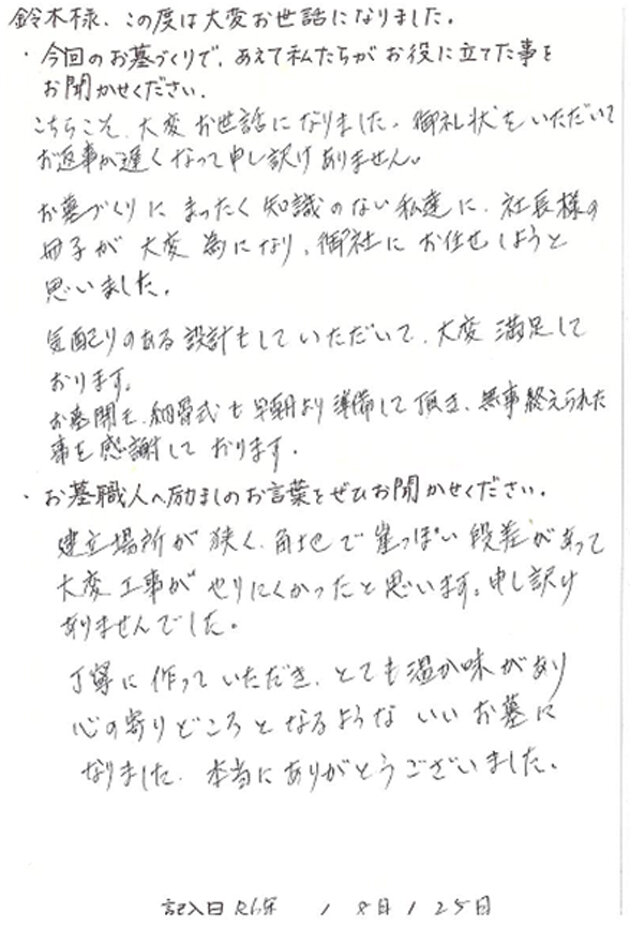 鈴木様、この度は大変お世話になりました。
・今回のお墓づくりで、あえて私たちがお役に立てた事を
お聞かせください。
こちらこそ、大変お世話になりました。御礼状をいただいて
お返事が遅くなって申し訳けありません。
お墓づくりにまったく知識のない私達に、社長様の
冊子が大変為になり、御社にお任せしようと
思いました。
気配りのある設計をしていただいて、大変満足して
おります。
お墓開き、納骨式も早朝より準備して頂き、無事終えられた
事を感謝しております。
・お墓職人へ励ましのお言葉をぜひお聞かせください。
建立場所が狭く、角地で崖っぽい段差があって
大変工事がやりにくかったと思います。申し訳け
ありませんでした。
丁寧に作っていただき、とても温か味があり
心の寄りどころとなるようないいお墓に
なりました。本当にありがとうございました。
記入日 R6年 / 8月 / 25日